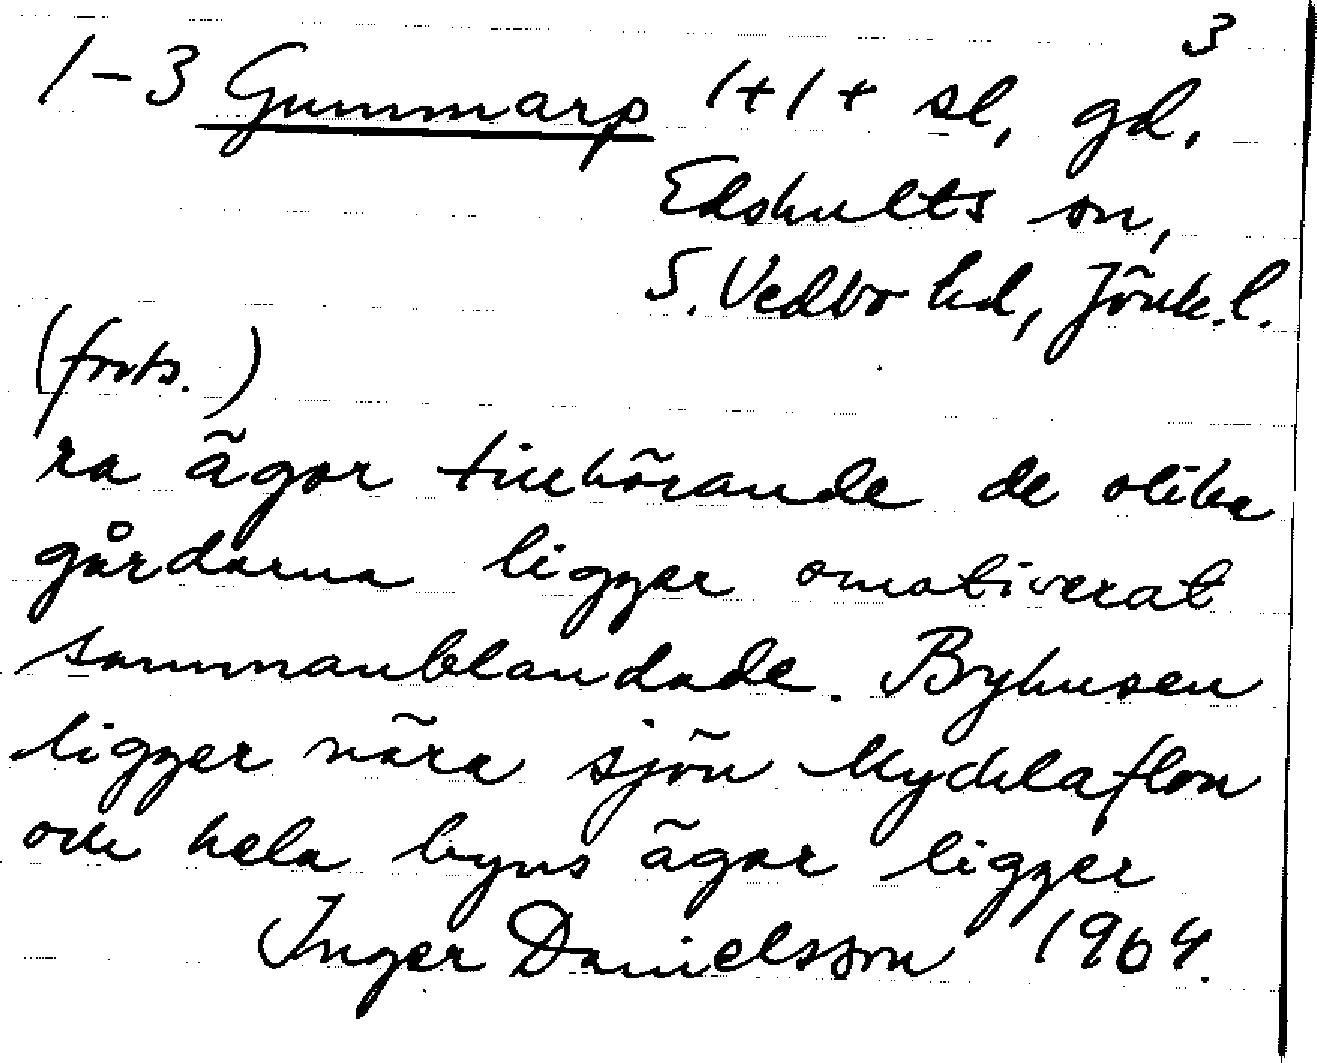 3
1-3 Gummarp 1+1+ sl, gd,
Edshults sn,
S. Vedbo hd, Jönk.l.
(forts.)
ra ägor tillhörande de olika
gårdarna ligger omotiverat
sammanblandade. Byhusen
ligger nära sjön Mycklaflon
och hela byns ägor ligger
Inger Danielsson 1964.